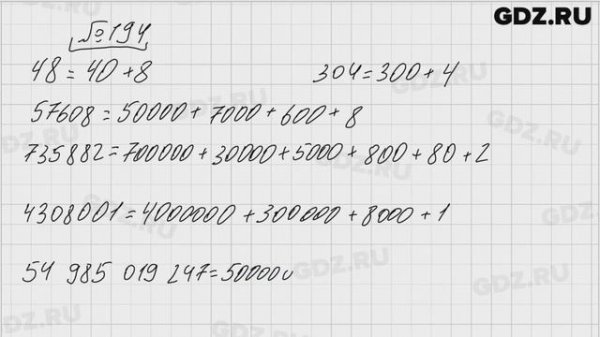 GDZ.RU
№194
48 = 40 + 8 304 = 300 + 4
57608 = 50000 + 7000 + 600 + 8
735882 = 700000 + 30000 + 5000 + 800 + 80 + 2
4308001 = 4000000 + 300000 + 8000 + 1
54 985 019 247 = 50000